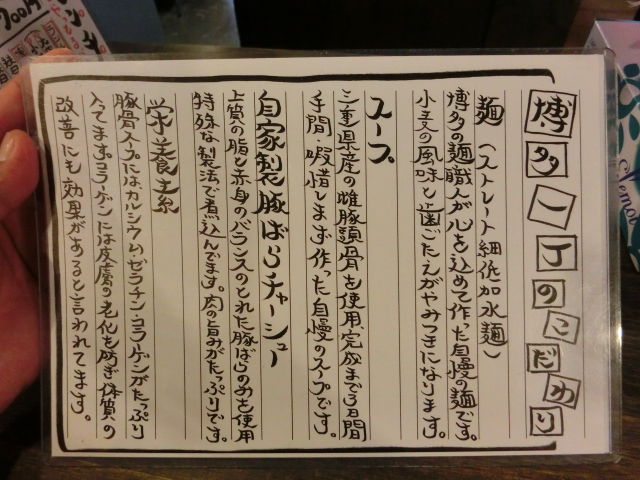 博多一丁のこだわり
麺（ストレート細低加水麺）
博多の麺職人が心を込めて作った自慢の麺です。
小麦の風味と歯ごたえがやみつきになります。
スープ
三重県産の雌豚頭骨を使用、完成まで3日間
手間・暇惜しまず作った自慢のスープです。
自家製豚ばらチャーシュー
上質の脂と赤身のバランスのとれた豚ばらのみを使用
特殊な製法で煮込んでます。肉の旨みがたっぷりです。
栄養素
豚骨スープにはカルシウム・ゼラチン・コラーゲンがたっぷり
入ってます。コラーゲンには皮膚の老化を防ぎ体質の
改善にも効果があると言われてます。
700円